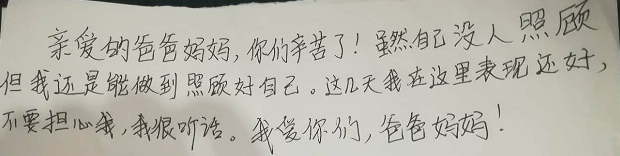 亲爱的爸爸妈妈,你们辛苦了!虽然自己没人照顾
但我还是能做到照顾好自己。这几天我在这里表现还好,
不要担心我,我很听话。我爱你们,爸爸妈妈!